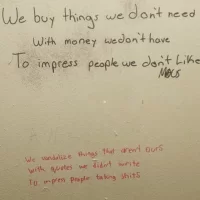 We buy things we dont need
With money we don't have
To impress people we don't Like
We vandalise things that aren't ours
with quotes we didn't write
To impress people taking shits